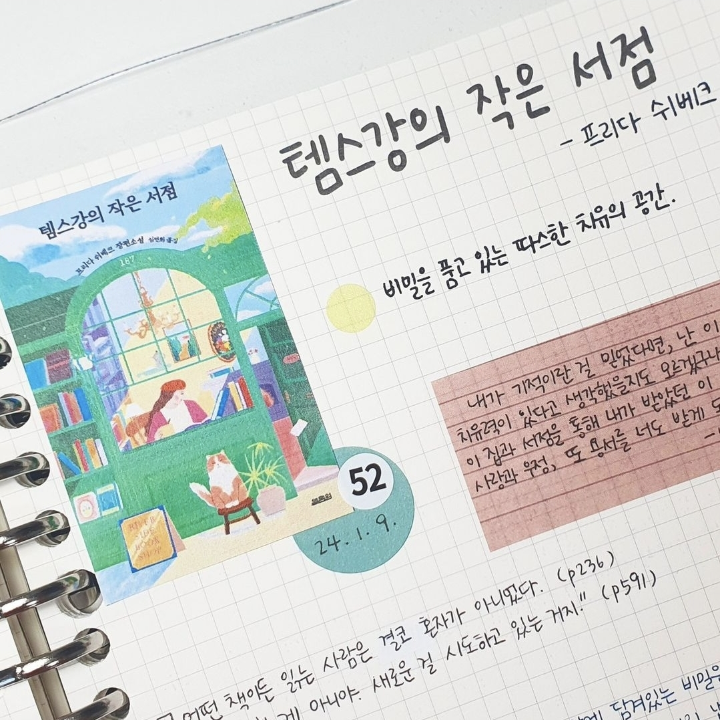 템스강의 작은 서점
- 프리다 쉬베크
템스강의 작은 서점
프리다 쉬베크 장편소설 심연희 옮김
187
RIVER
SIDE
BOOK
SHOP
비밀을 품고 있는 따스한 치유의 공간.
내가 기적이란 걸 믿었다면, 난 이
치유력이 있다고 생각했을지도 모르겠구나
이 집과 서점을 통해 내가 받았던 이
사랑과 우정, 또 용서를 너도 받게 되
52
24. 1. 9.
어떤 책이든 읽는 사람은 결코 혼자가 아니었다. (p236)
게 아니야. 새로운 걸 시도하고 있는 거지." (p591)
담겨있는 비밀은